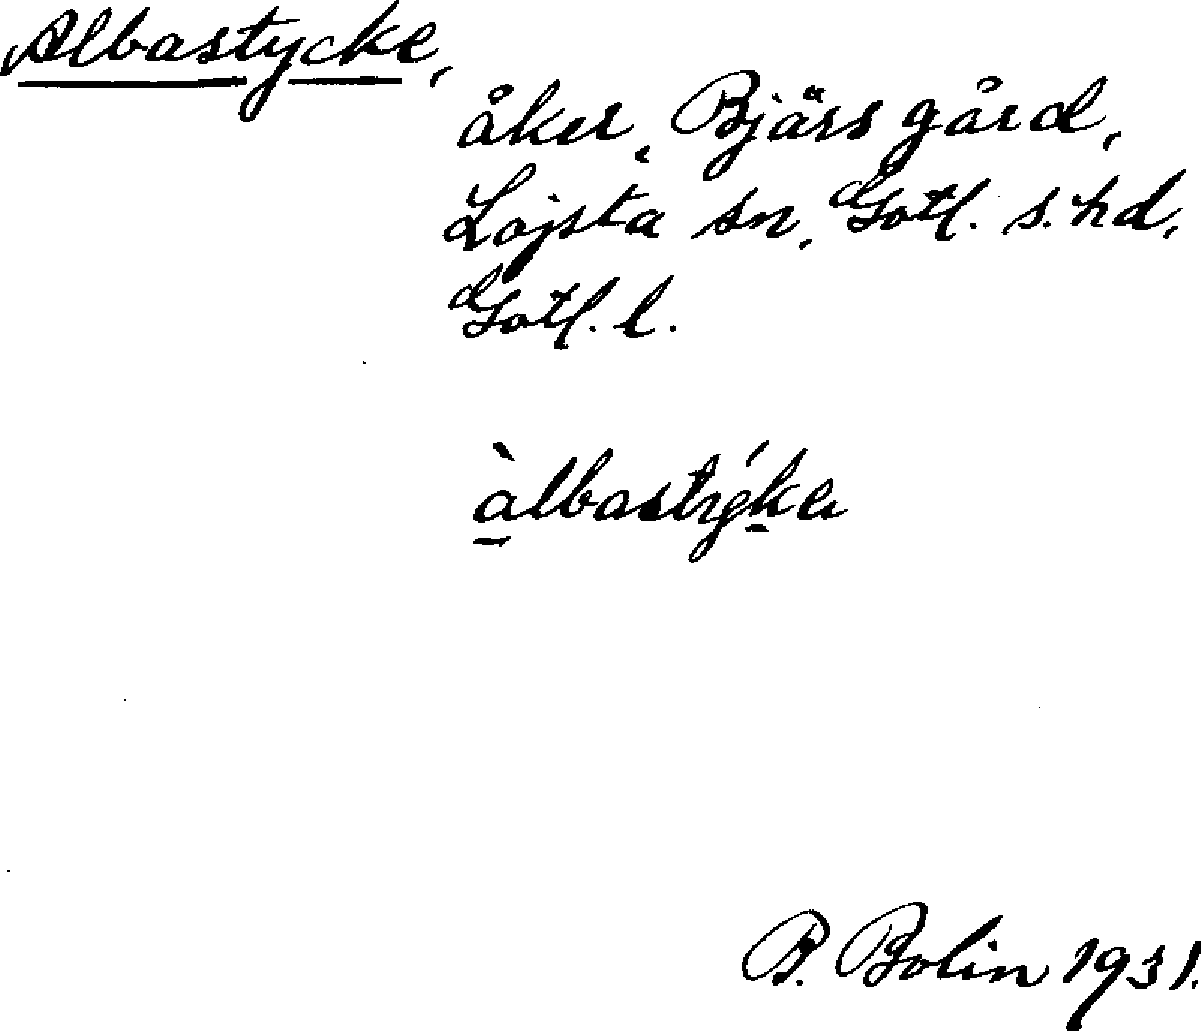 Albastycke,
åker, Bjärs gård,
Lojsta sn, Gotl. s. hd,
Gotl. l.
àlbastýke
B. Bolin 1931.